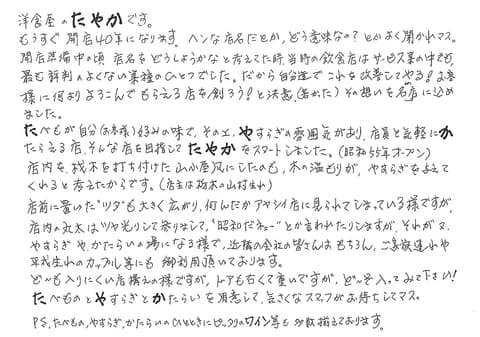 洋食屋のたやかです。
もうすぐ開店40年になります。ヘンな店名だとか、どう意味なの?とかよく聞かれマス。
開店準備中の頃 店名をどうしようかなと考えてた時、当時の飲食店はサービス業の中でも、
最も評判のよくない業種のひとつでした。だから自分達でこれを改善してやる!お客
様に何よりよろこんでもらえる店を創ろう!と決意、(若かった)その想いを店名に込め
ました。
たべものが自分(お客様)好みの味で、その上、やすらぎの雰囲気があり、店員と気軽にか
たらえる店、そんな店を目指してたやかをスタートしました。(昭和55年オープン)
店内を、桟木を打ち付けた山小屋風にしたのも、木の温もりが、やすらぎを与えて
くれると考えたからです。(店主は栃木の山村生れ)
店前に置いた"ツタ"も大きく広がり、何んだかアヤシイ店に見られてしまっている様ですが、
店内の丸太はツヤ光りして黒りまして、"昭和だネェー"とか言われたりしますが、それが又、
やすらぎや、かたらいの場になる様で、近隣の会社の皆さんはもちろん、ご家族連れや
平成生れのカップル等にも御利用頂いております。
ど〜も入りにくい店構えの様ですが、ドアも古くて重いですが、ど〜ぞ入ってみて下さい!
たべものとやすらぎとかたらいを用意して、気さくなスタッフがお待ちしてマス。
P.S. たべもの、やすらぎ、かたらいのひとときにピッタリのワイン等も多数揃えております。